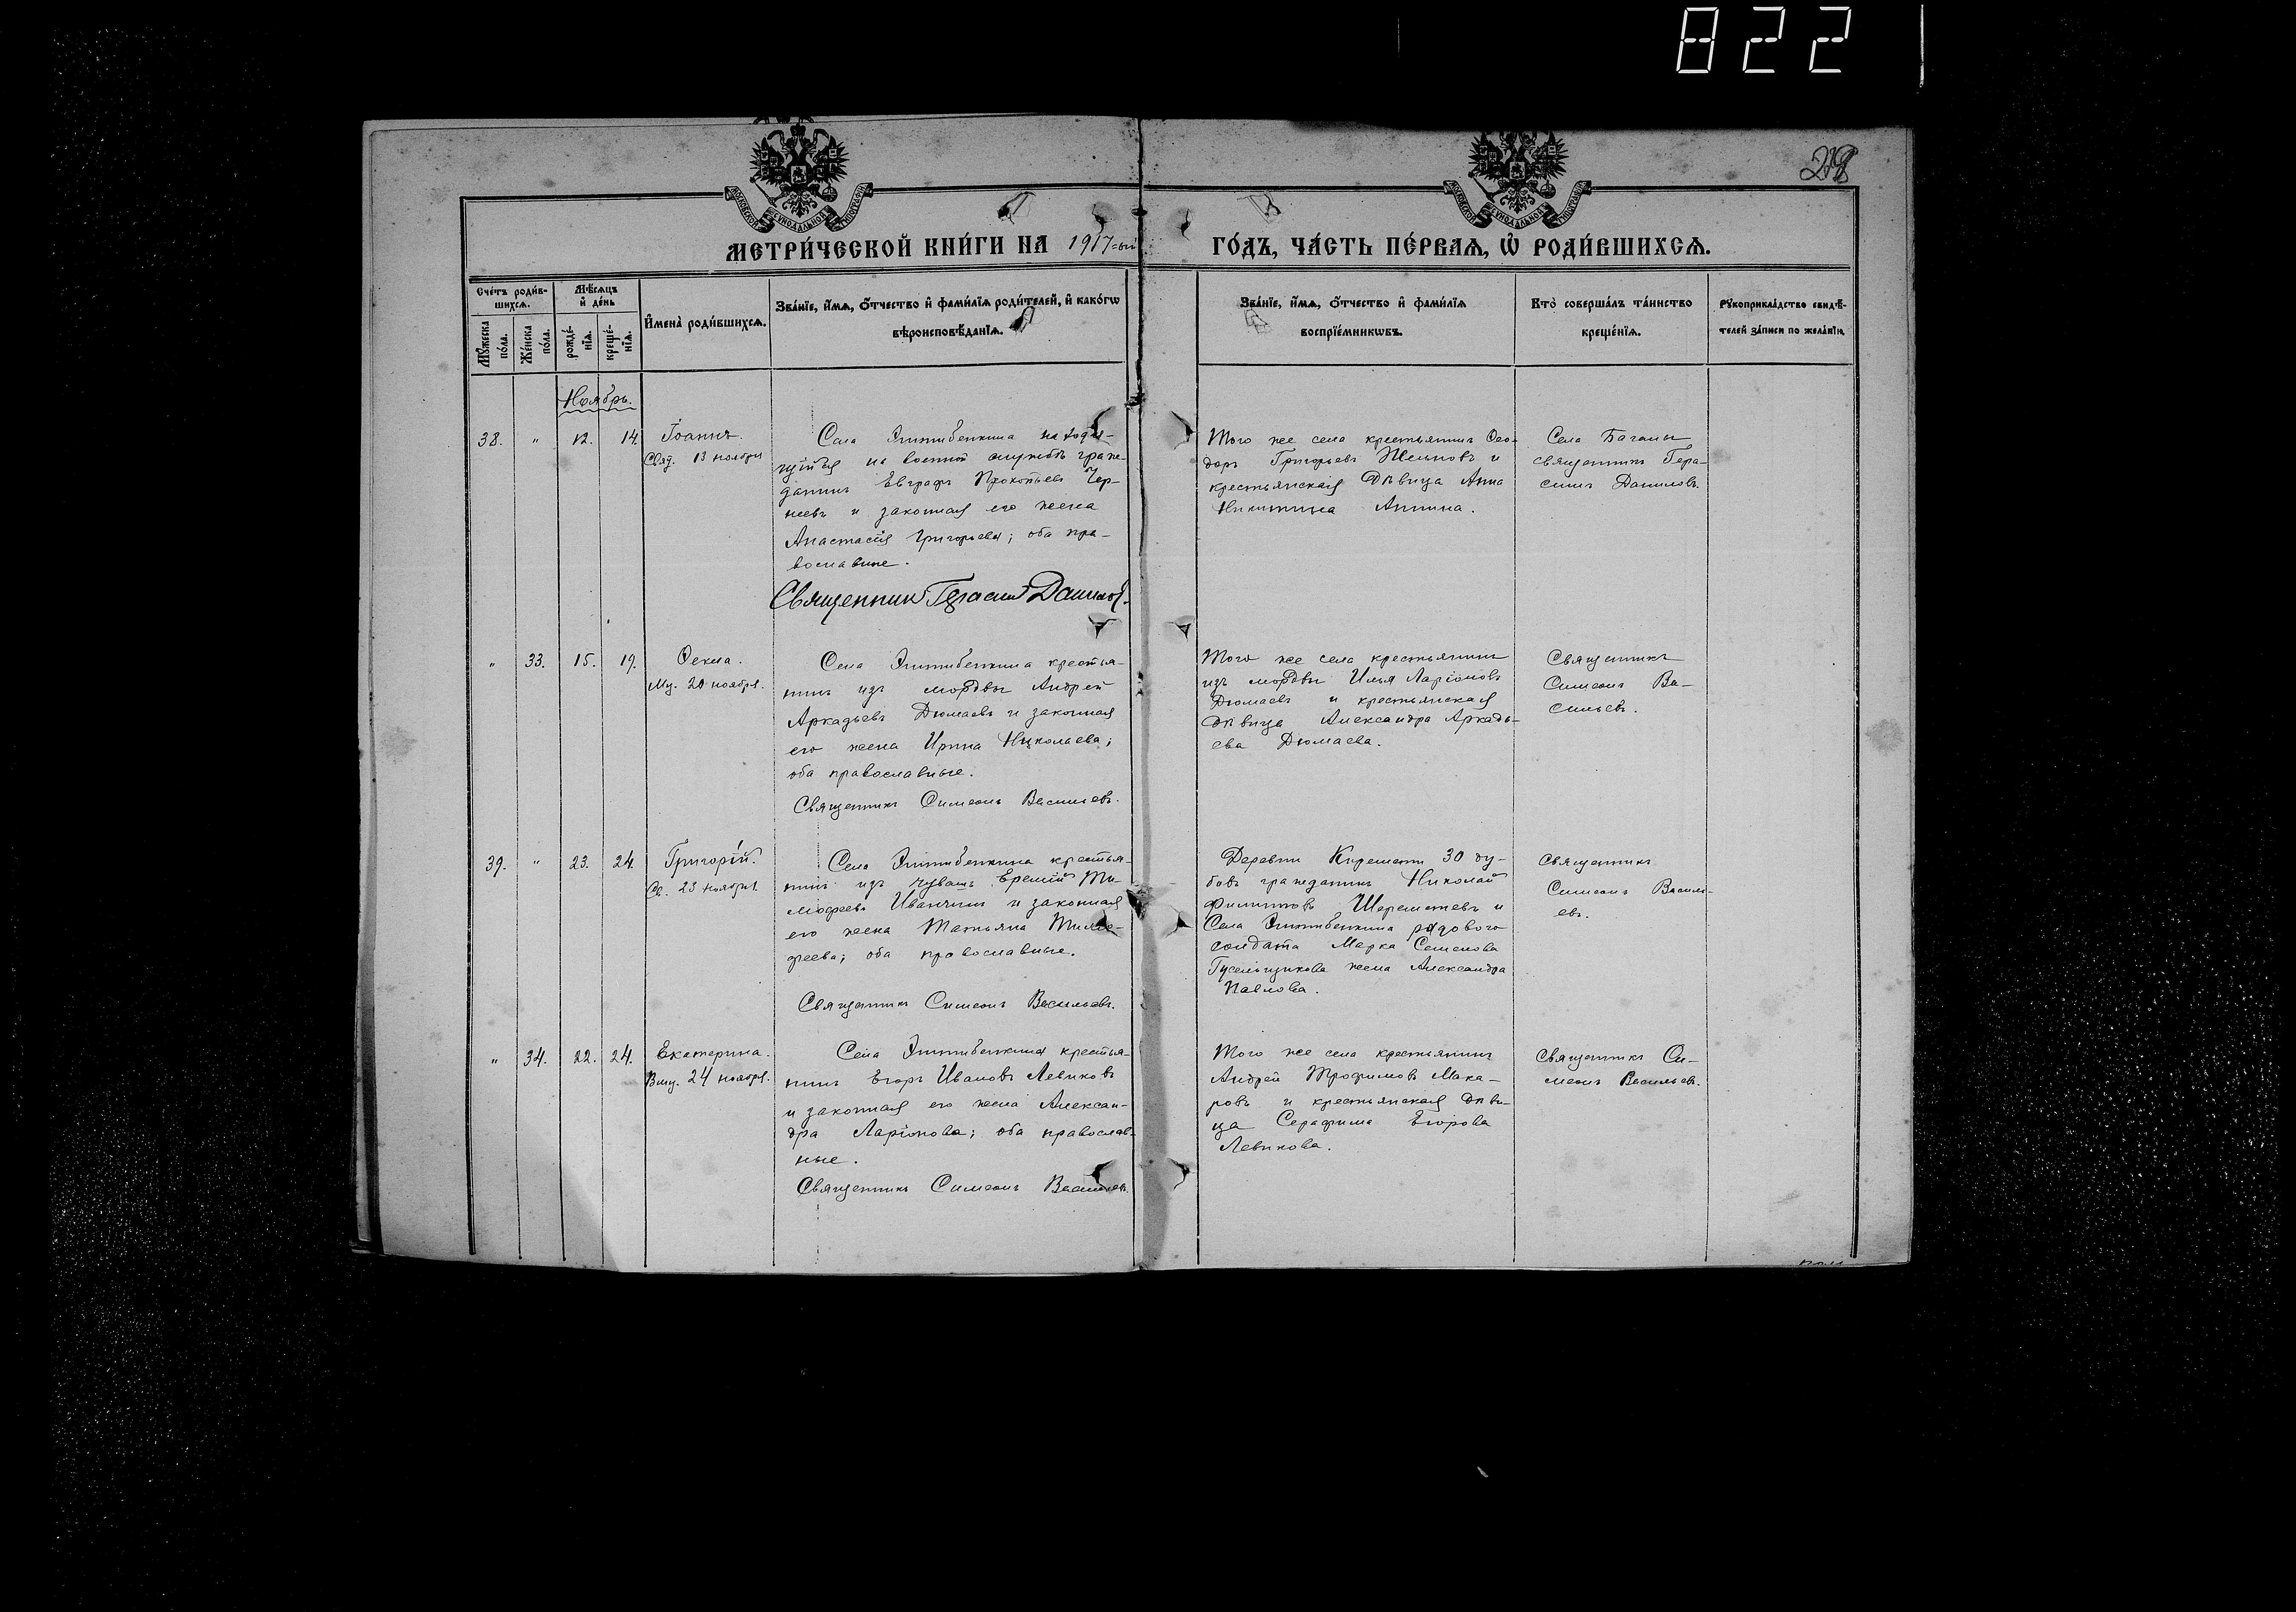 822
218
МОСКОВСКОЙ СѴНОДАЛЬНОЙ ТИПОГРАФІИ
МОСКОВСКОЙ СѴНОДАЛЬНОЙ ТИПОГРАФІИ
МЕТРИ́ЧЕСКОЙ КНИ́ГИ НА 1917=ый ГО́ДЪ, ЧА́СТЬ ПЕ́РВАѦ, Ѡ҆ РОДИ́ВШИХСѦ.
Сче́тъ роди́в-
шихсѧ.
Мѣ́сѧцъ
и҆ де́нь
Мꙋ́жеска
по́ла.
Же́нска
по́ла.
рожде́-
нїѧ.
креще́-
нїѧ.
И҆мена̀ роди́вшихсѧ.
Зва́нїе, и҆́мѧ, ѻ҆́тчество и҆ фами́лїѧ роди́телей, и҆ како́гѡ
вѣроисповѣ́данїѧ.
Зва́нїе, и҆́мѧ, ѻ҆́тчество и҆ фами́лїѧ
воспрїе́мникѡвъ.
Кто̀ соверша́лъ та́инство
креще́нїѧ.
Рꙋкоприкла́дство свидѣ́-
телей за́писи по жела́нїю.
Ноябрь.
38. " 12. 14. Іоаннъ.
Свят. 13 ноября
Села находя-
щійся на военной службѣ граж-
данинъ Евграфъ Прокопьевъ Чер-
неевъ и законная его жена
Анастасія Григорьева; оба пра-
вославные.
Священникъ Герасимъ Даниловъ.
Того же села крестьянинъ Ѳео-
доръ Григорьевъ и
крестьянская дѣвица Анна
Никитина Анчина.
Села Баганы
священникъ Гера-
симъ Даниловъ.
" 33. 15. 19. Ѳекла.
Му. 20 ноября.
Села крестья-
нинъ изъ мордвы Андрей
Аркадьевъ Дюмаевъ и законная
его жена Ирина Николаева;
оба православные.
Священникъ Симеонъ Васильевъ.
Того же села крестьянинъ
изъ мордвы Илья Ларіоновъ
Дюмаевъ и крестьянская
дѣвица Александра Аркадь-
ева Дюмаева.
Священникъ
Симеонъ Ва-
сильевъ.
39. " 23. 24. Григорій.
Св. 23 ноября.
Села крестья-
нинъ изъ чувашъ Еремій Ти-
мофеевъ Иванчинъ и законная
его жена Татьяна Тимо-
феева; оба православные.
Священникъ Симеонъ Васильевъ.
Деревни Киремети 30 ду-
бовъ гражданинъ Николай
Филипповъ Шереметевъ и
Села рядового
солдата Марка Семенова
Гусельщикова жена Александра
Павлова.
Священникъ
Симеонъ Василь-
евъ.
" 34. 22. 24. Екатерина.
Вму. 24 ноября.
Села крестья-
нинъ Егоръ Ивановъ Левиковъ
и законная его жена Алексан-
дра Ларіонова; оба православ-
ные.
Священникъ Симеонъ Васильевъ.
Того же села крестьянинъ
Андрей Трофимовъ Мака-
ровъ и крестьянская дѣви-
ца Серафима Егорова
Левикова.
Священникъ Си-
меонъ Васильевъ.